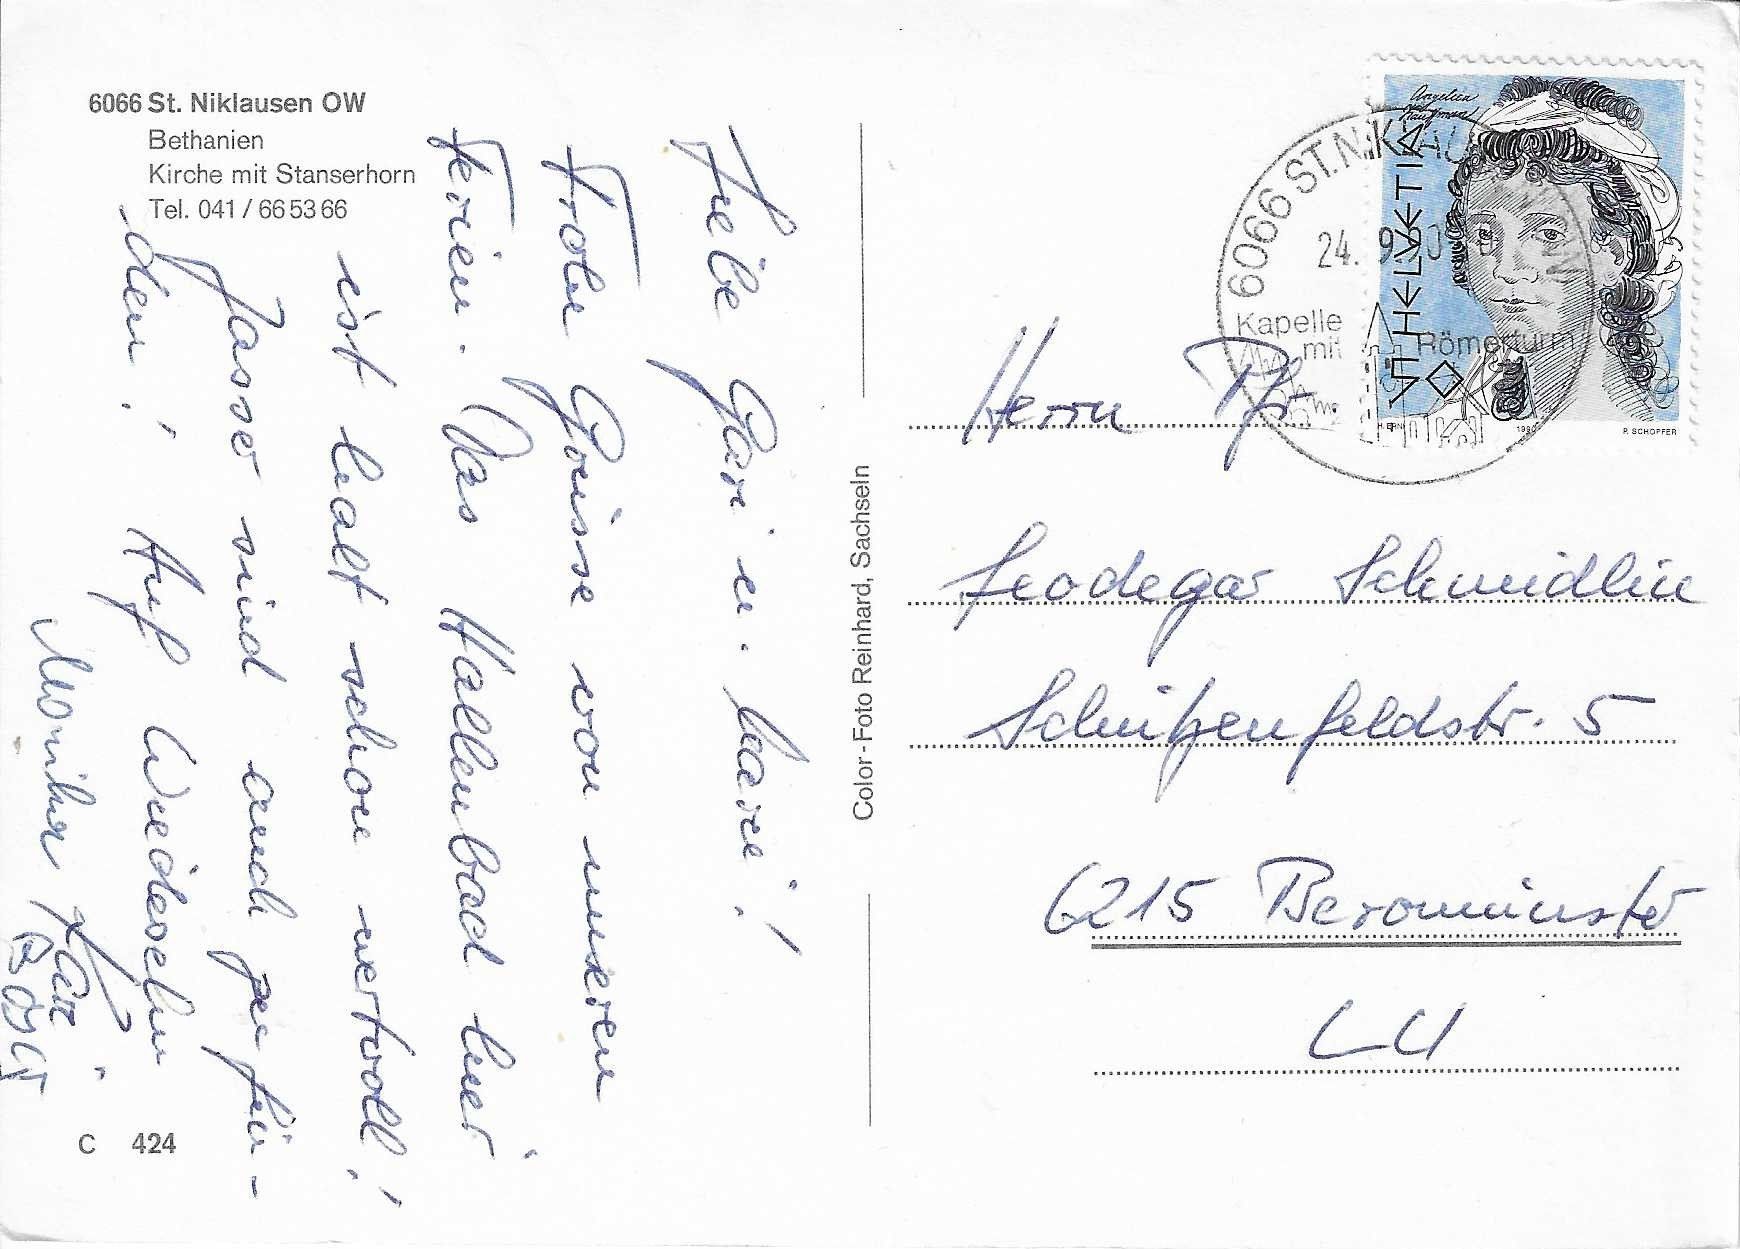 6066 St. Niklausen OW
Bethanien
Kirche mit Stanserhorn
Tel. 041 / 66 53 66
Liebe Gäri u. Marie!
Frohe Grüsse von unseren
Ferien. Das Hallenbad hier
ist halt schon wertvoll!
Jasser sind auch zu fin-
den! Auf Wiedersehn
Monika Kari
C 424
Color-Foto Reinhard, Sachseln
6066 ST. NIKLAUSEN
24. 9. 90
Kapelle mit Römerturm
Angelica Kaufmann
HELVETIA
50
1990
P. SCHOPFER
Herrn Pfr.
Leodegar Schmidlin
Schützenfeldstr. 5
6215 Beromünster
LU